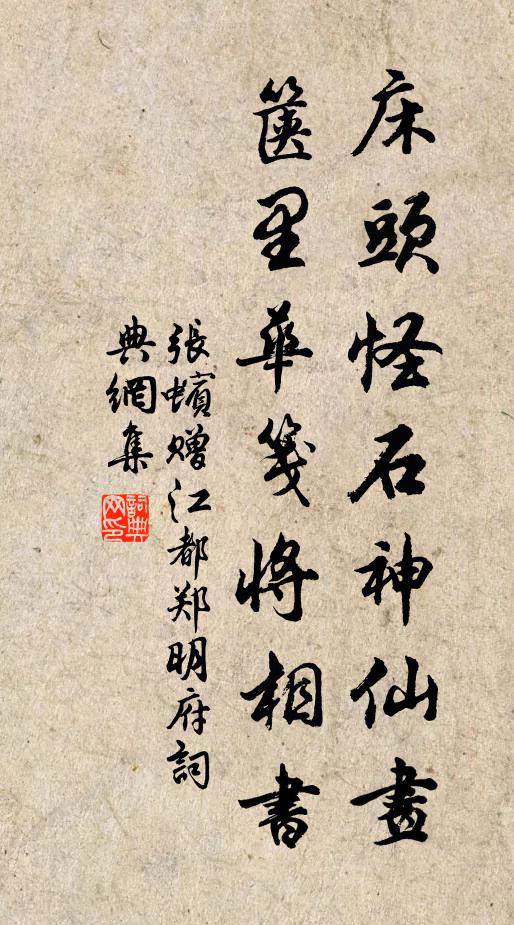 床頭怪石神仙畫
篋里華箋將相書
張蠙贈江都郑明府詞
典網集
詞典
网印